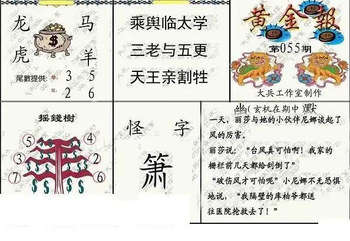 龙 马
虎 羊
尾數提供: 3 5
2 6
乘舆临太学
三老与五更
天王亲割牲
黄金報
第055期
大兵工作室制作
摇錢樹
④ ②
⑤ ①
⑦ ⑥
怪 字
箫
幽(玄机在期中)默
一天，丽莎与她的小伙伴尼娜谈起了
风的厉害。
丽莎说：“台风真可怕啊！我家的
栅栏前几天都给刮倒了”
“破伤风才可怕呢”小尼娜不无恐惧
地说，“我隔壁的库柏爷都送
往医院抢救去了！”